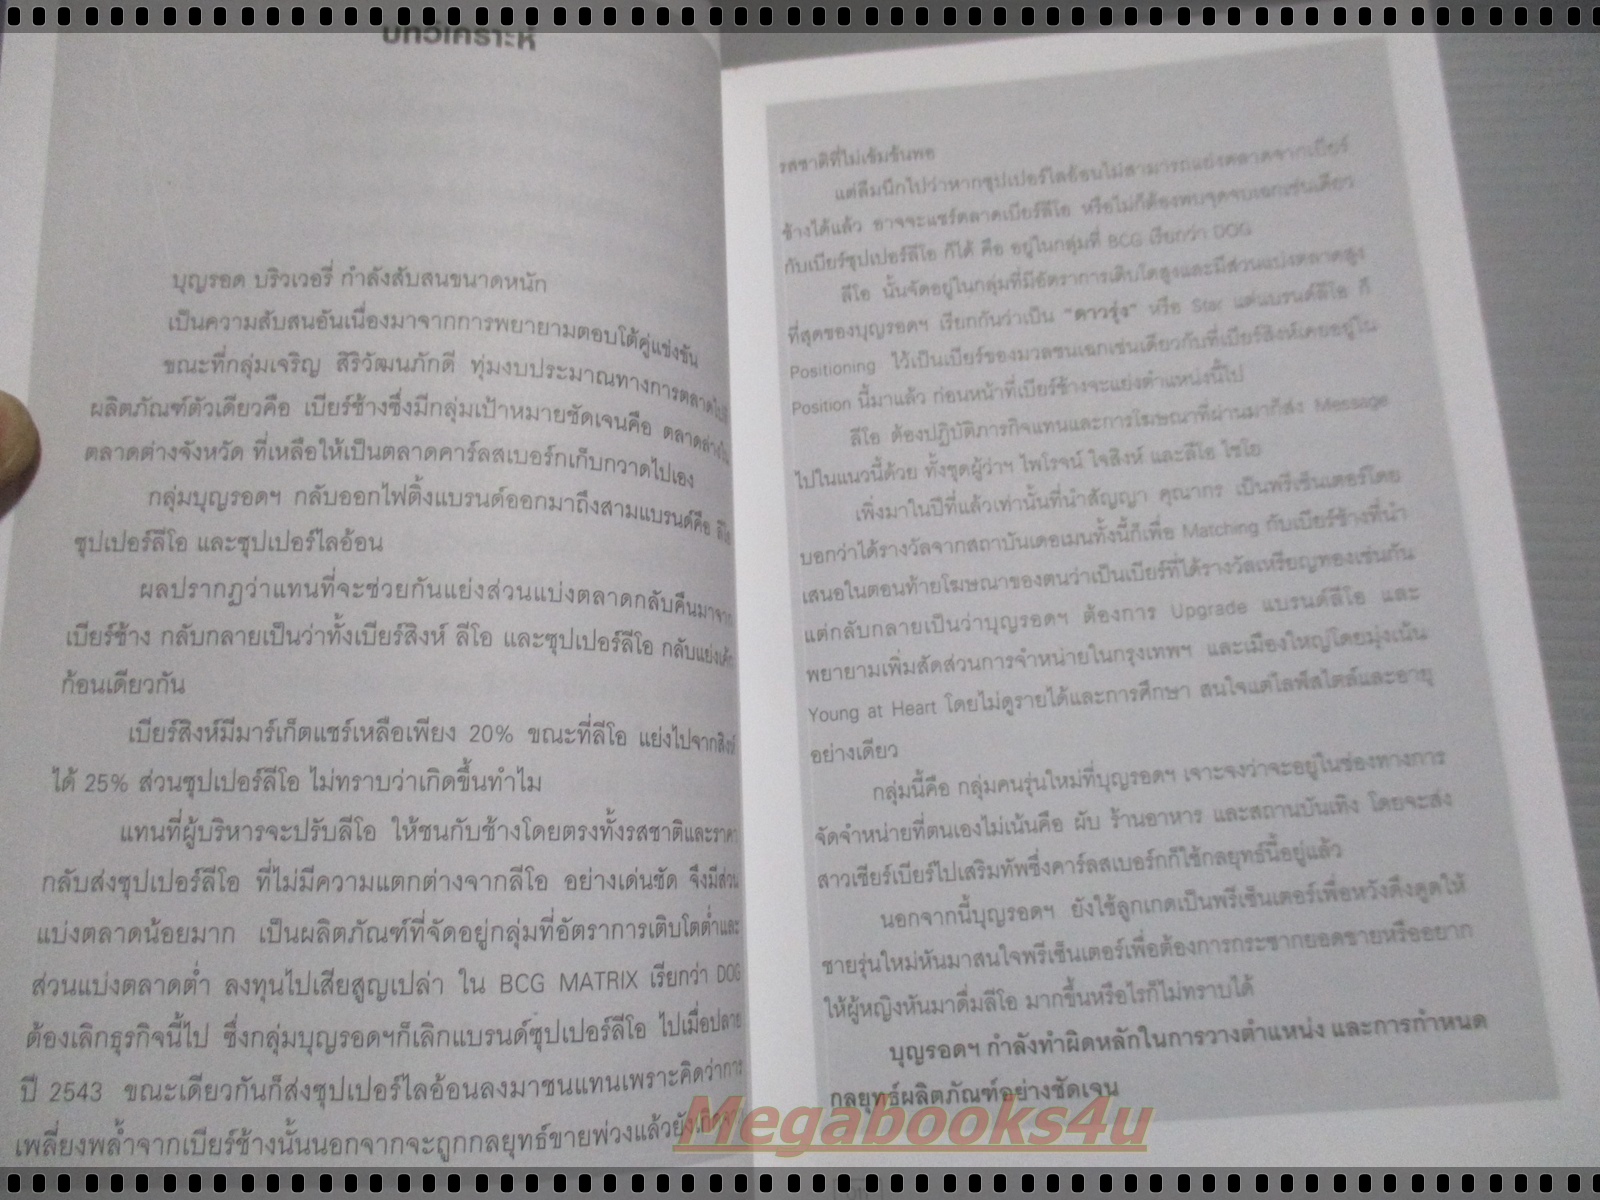 บทวิเคราะห์
บุญรอด บริวเวอรี่ กำลังสับสนขนาดหนัก
เป็นความสับสนอันเนื่องมาจากการพยายามตอบโต้คู่แข่งขัน
ขณะที่กลุ่มเจริญ สิริวัฒนภักดี ทุ่มงบประมาณทางการตลาด
ผลิตภัณฑ์ตัวเดียวคือ เบียร์ช้างซึ่งมีกลุ่มเป้าหมายชัดเจนคือ ตลาดล่าง
ตลาดต่างจังหวัด ที่เหลือให้เป็นตลาดคาร์ลสเบอร์กเก็บกวาดไปเอง
กลุ่มบุญรอดฯ กลับออกไฟติ้งแบรนด์ออกมาถึงสามแบรนด์คือ ลีโอ
ซุปเปอร์ลีโอ และซุปเปอร์ไลอ้อน
ผลปรากฏว่าแทนที่จะช่วยกันแย่งส่วนแบ่งตลาดกลับคืนมาจาก
เบียร์ช้าง กลับกลายเป็นว่าทั้งเบียร์สิงห์ ลีโอ และซุปเปอร์ลีโอ กลับแย่งเค้ก
ก้อนเดียวกัน
เบียร์สิงห์มีมาร์เก็ตแชร์เหลือเพียง 20% ขณะที่ลีโอ แย่งไปจากสิงห์
ได้ 25% ส่วนซุปเปอร์ลีโอ ไม่ทราบว่าเกิดขึ้นทำไม
แทนที่ผู้บริหารจะปรับลีโอ ให้ชนกับช้างโดยตรงทั้งรสชาติและราคา
กลับส่งซุปเปอร์ลีโอ ที่ไม่มีความแตกต่างจากลีโอ อย่างเด่นชัด จึงมีส่วน
แบ่งตลาดน้อยมาก เป็นผลิตภัณฑ์ที่จัดอยู่กลุ่มที่อัตราการเติบโตต่ำและ
ส่วนแบ่งตลาดต่ำ ลงทุนไปเสียสูญเปล่า ใน BCG MATRIX เรียกว่า DOG
ต้องเลิกธุรกิจนี้ไป ซึ่งกลุ่มบุญรอดฯก็เลิกแบรนด์ซุปเปอร์ลีโอ ไปเมื่อปลาย
ปี 2543 ขณะเดียวกันก็ส่งซุปเปอร์ไลอ้อนลงมาชนแทนเพราะคิดว่าการ
เพลี่ยงพล้ำจากเบียร์ช้างนั้นนอกจากจะถูกกลยุทธ์ขายพ่วงแล้วยังเกิดจาก
รสชาติที่ไม่เข้มข้นพอ
แต่ลืมนึกไปว่าหากซุปเปอร์ไลอ้อนไม่สามารถแย่งตลาดจากเบียร์
ช้างได้แล้ว อาจจะแชร์ตลาดเบียร์ลีโอ หรือไม่ก็ต้องพบจุดจบเฉกเช่นเดียว
กับเบียร์ซุปเปอร์ลีโอ ก็ได้ คือ อยู่ในกลุ่มที่ BCG เรียกว่า DOG
ลีโอ นั้นจัดอยู่ในกลุ่มที่มีอัตราการเติบโตสูงและมีส่วนแบ่งตลาดสูง
ที่สุดของบุญรอดฯ เรียกกันว่าเป็น "ดาวรุ่ง" หรือ Star แต่แบรนด์ลีโอ ก็
Positioning ไว้เป็นเบียร์ของมวลชนเฉกเช่นเดียวกับที่เบียร์สิงห์เคยอยู่ใน
Position นี้มาแล้ว ก่อนหน้าที่เบียร์ช้างจะแย่งตำแหน่งนี้ไป
ลีโอ ต้องปฏิบัติภารกิจแทนและการโฆษณาที่ผ่านมาก็ส่ง Message
ไปในแนวนี้ด้วย ทั้งชุดผู้ว่าฯ ไพโรจน์ ใจสิงห์ และลีโอ ไชโย
เพิ่งมาในปีที่แล้วเท่านั้นที่นำสัญญา คุณากร เป็นพรีเซ็นเตอร์โดย
บอกว่าได้รางวัลจากสถาบันเดอเมนทั้งนี้ก็เพื่อ Matching กับเบียร์ช้างที่นำ
เสนอในตอนท้ายโฆษณาของตนว่าเป็นเบียร์ที่ได้รางวัลเหรียญทองเช่นกัน
แต่กลับกลายเป็นว่าบุญรอดฯ ต้องการ Upgrade แบรนด์ลีโอ และ
พยายามเพิ่มสัดส่วนการจำหน่ายในกรุงเทพฯ และเมืองใหญ่โดยมุ่งเน้น
Young at Heart โดยไม่ดูรายได้และการศึกษา สนใจแต่ไลฟ์สไตล์และอายุ
อย่างเดียว
กลุ่มนี้คือ กลุ่มคนรุ่นใหม่ที่บุญรอดฯ เจาะจงว่าจะอยู่ในช่องทางการ
จัดจำหน่ายที่ตนเองไม่เน้นคือ ผับ ร้านอาหาร และสถานบันเทิง โดยจะส่ง
สาวเชียร์เบียร์ไปเสริมทัพซึ่งคาร์ลสเบอร์กก็ใช้กลยุทธ์นี้อยู่แล้ว
นอกจากนี้บุญรอดฯ ยังใช้ลูกเกดเป็นพรีเซ็นเตอร์เพื่อหวังดึงดูดให้
ชายรุ่นใหม่หันมาสนใจพรีเซ็นเตอร์เพื่อต้องการกระชากยอดขายหรืออยาก
ให้ผู้หญิงหันมาดื่มลีโอ มากขึ้นหรือไรก็ไม่ทราบได้
บุญรอดฯ กำลังทำผิดหลักในการวางตำแหน่ง และการกำหนด
กลยุทธ์ผลิตภัณฑ์อย่างชัดเจน
Megabooks4u